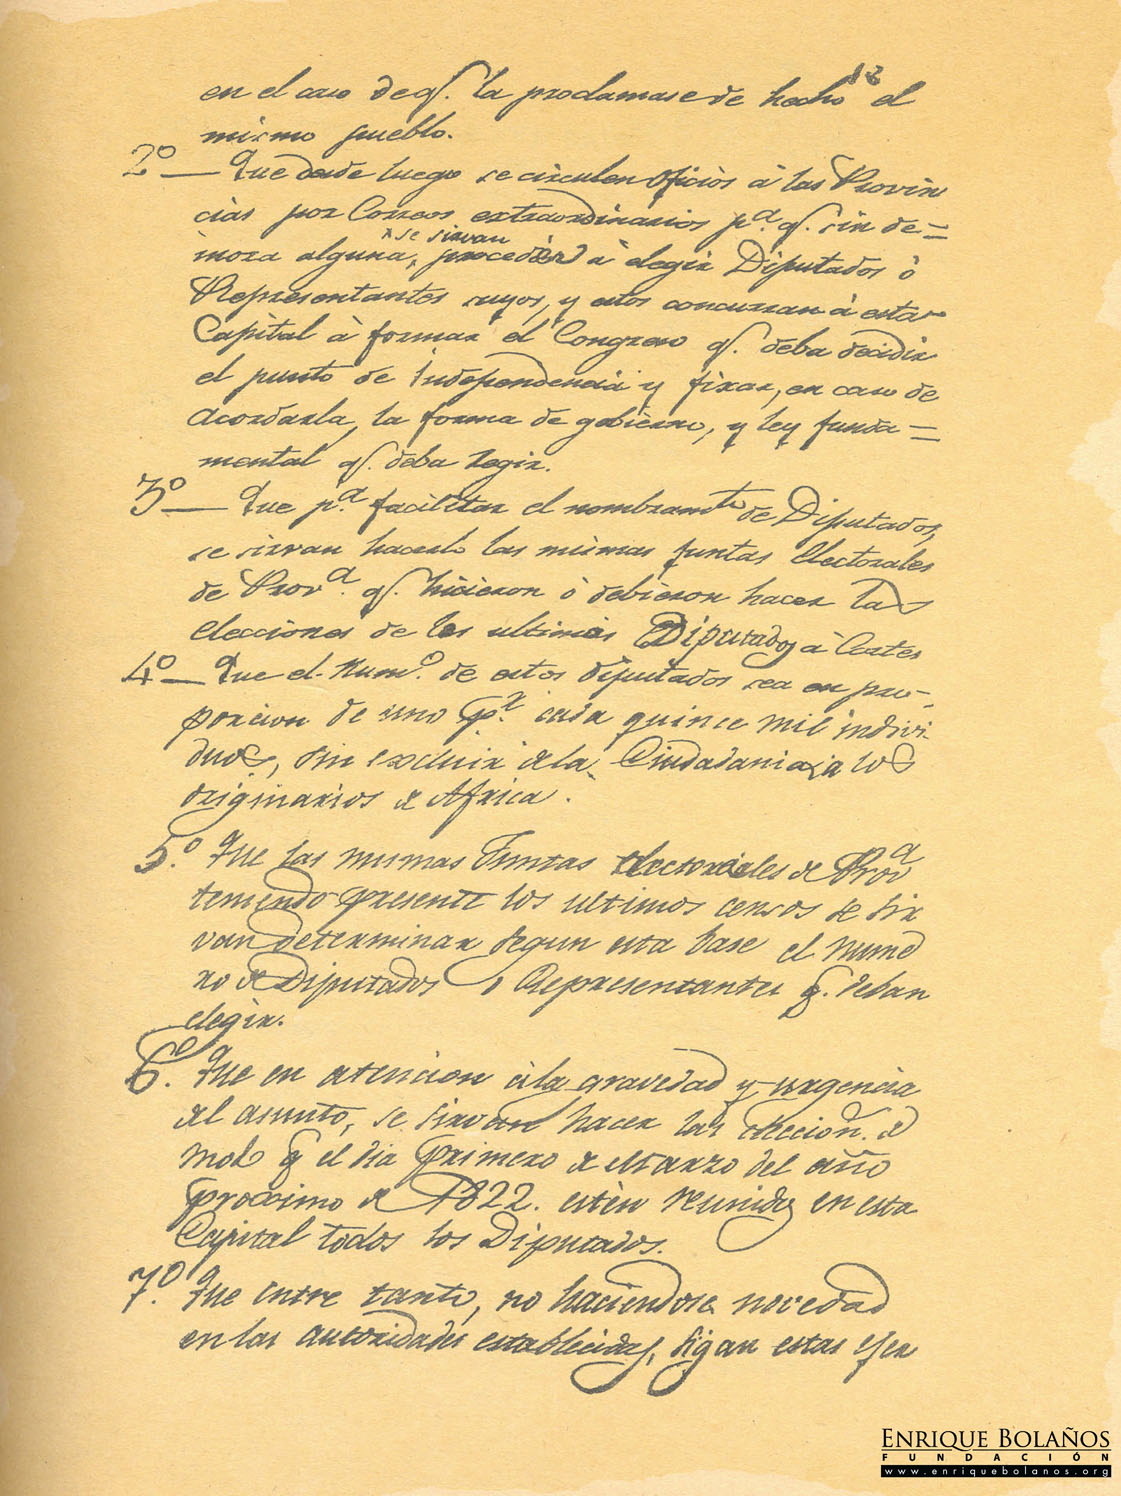 12
en el caso de q.ͤ la proclamase de hecho el
mismo pueblo.
2º — Que desde luego se circulen oficios á las Provin
cias por Correos extraordinarios p.ª q.ͤ sin de=
mora alguna, se sirvan proceder á elegir Diputados ó
Representantes suyos, y estos concurran á esta
Capital á formar el Congreso q.ͤ deba decidir
el punto de Independencia y fixar, en caso de
acordarla, la forma de gobierno, y ley funda=
mental q.ͤ deba regir.
3º — Que p.ª facilitar el nombram.ᵗᵒ de Diputados,
se sirvan hacerlo las mismas Juntas Electorales
de Prov.ª q.ͤ hicieron ó debieron hacer las
elecciones de los ultimos Diputados á Cortes
4º — Que el Num.º de estos diputados sea en pro-
porcion de uno p.ʳ cada quince mil indivi-
duos, sin excluir de la Ciudadania a los
originarios de Africa.
5.º Que las mismas Juntas Electorales de Provª
teniendo presente los ultimos censos se sir
van determinar segun esta base el nume
ro de Diputados o Representantes q. deban
elegir.
6.º Que en atencion á la gravedad y urgencia
del asunto, se sirvan hacer las eleccion.ˢ de
modo q el dia primero de Marzo del año
proximo de 1822. estén reunidos en esta
Capital todos los Diputados.
7.º Que entre tanto, no haciendose novedad
en las autoridades establecidas, sigan estas ejer
ENRIQUE BOLAÑOS
FUNDACIÓN
www.enriquebolanos.org